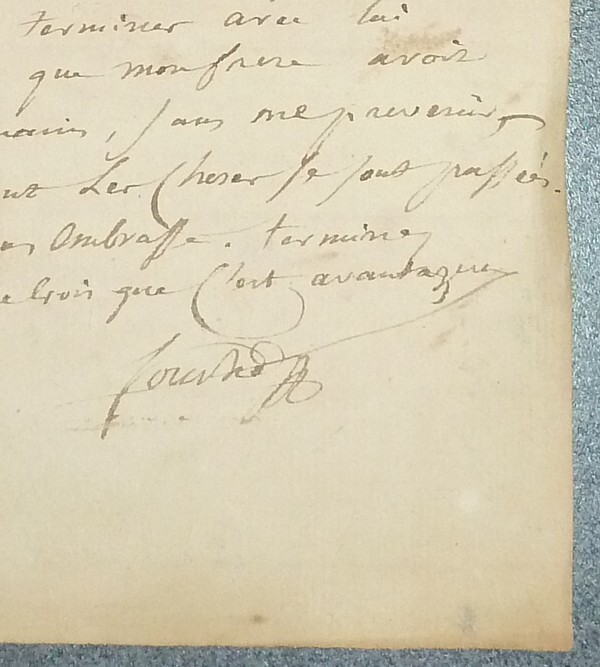 terminer avec lui
que mon frere avoit
mains, sans me prevenir,
Les Choses se sont passées.
Embrasse. terminez
crois que C'est avantageux